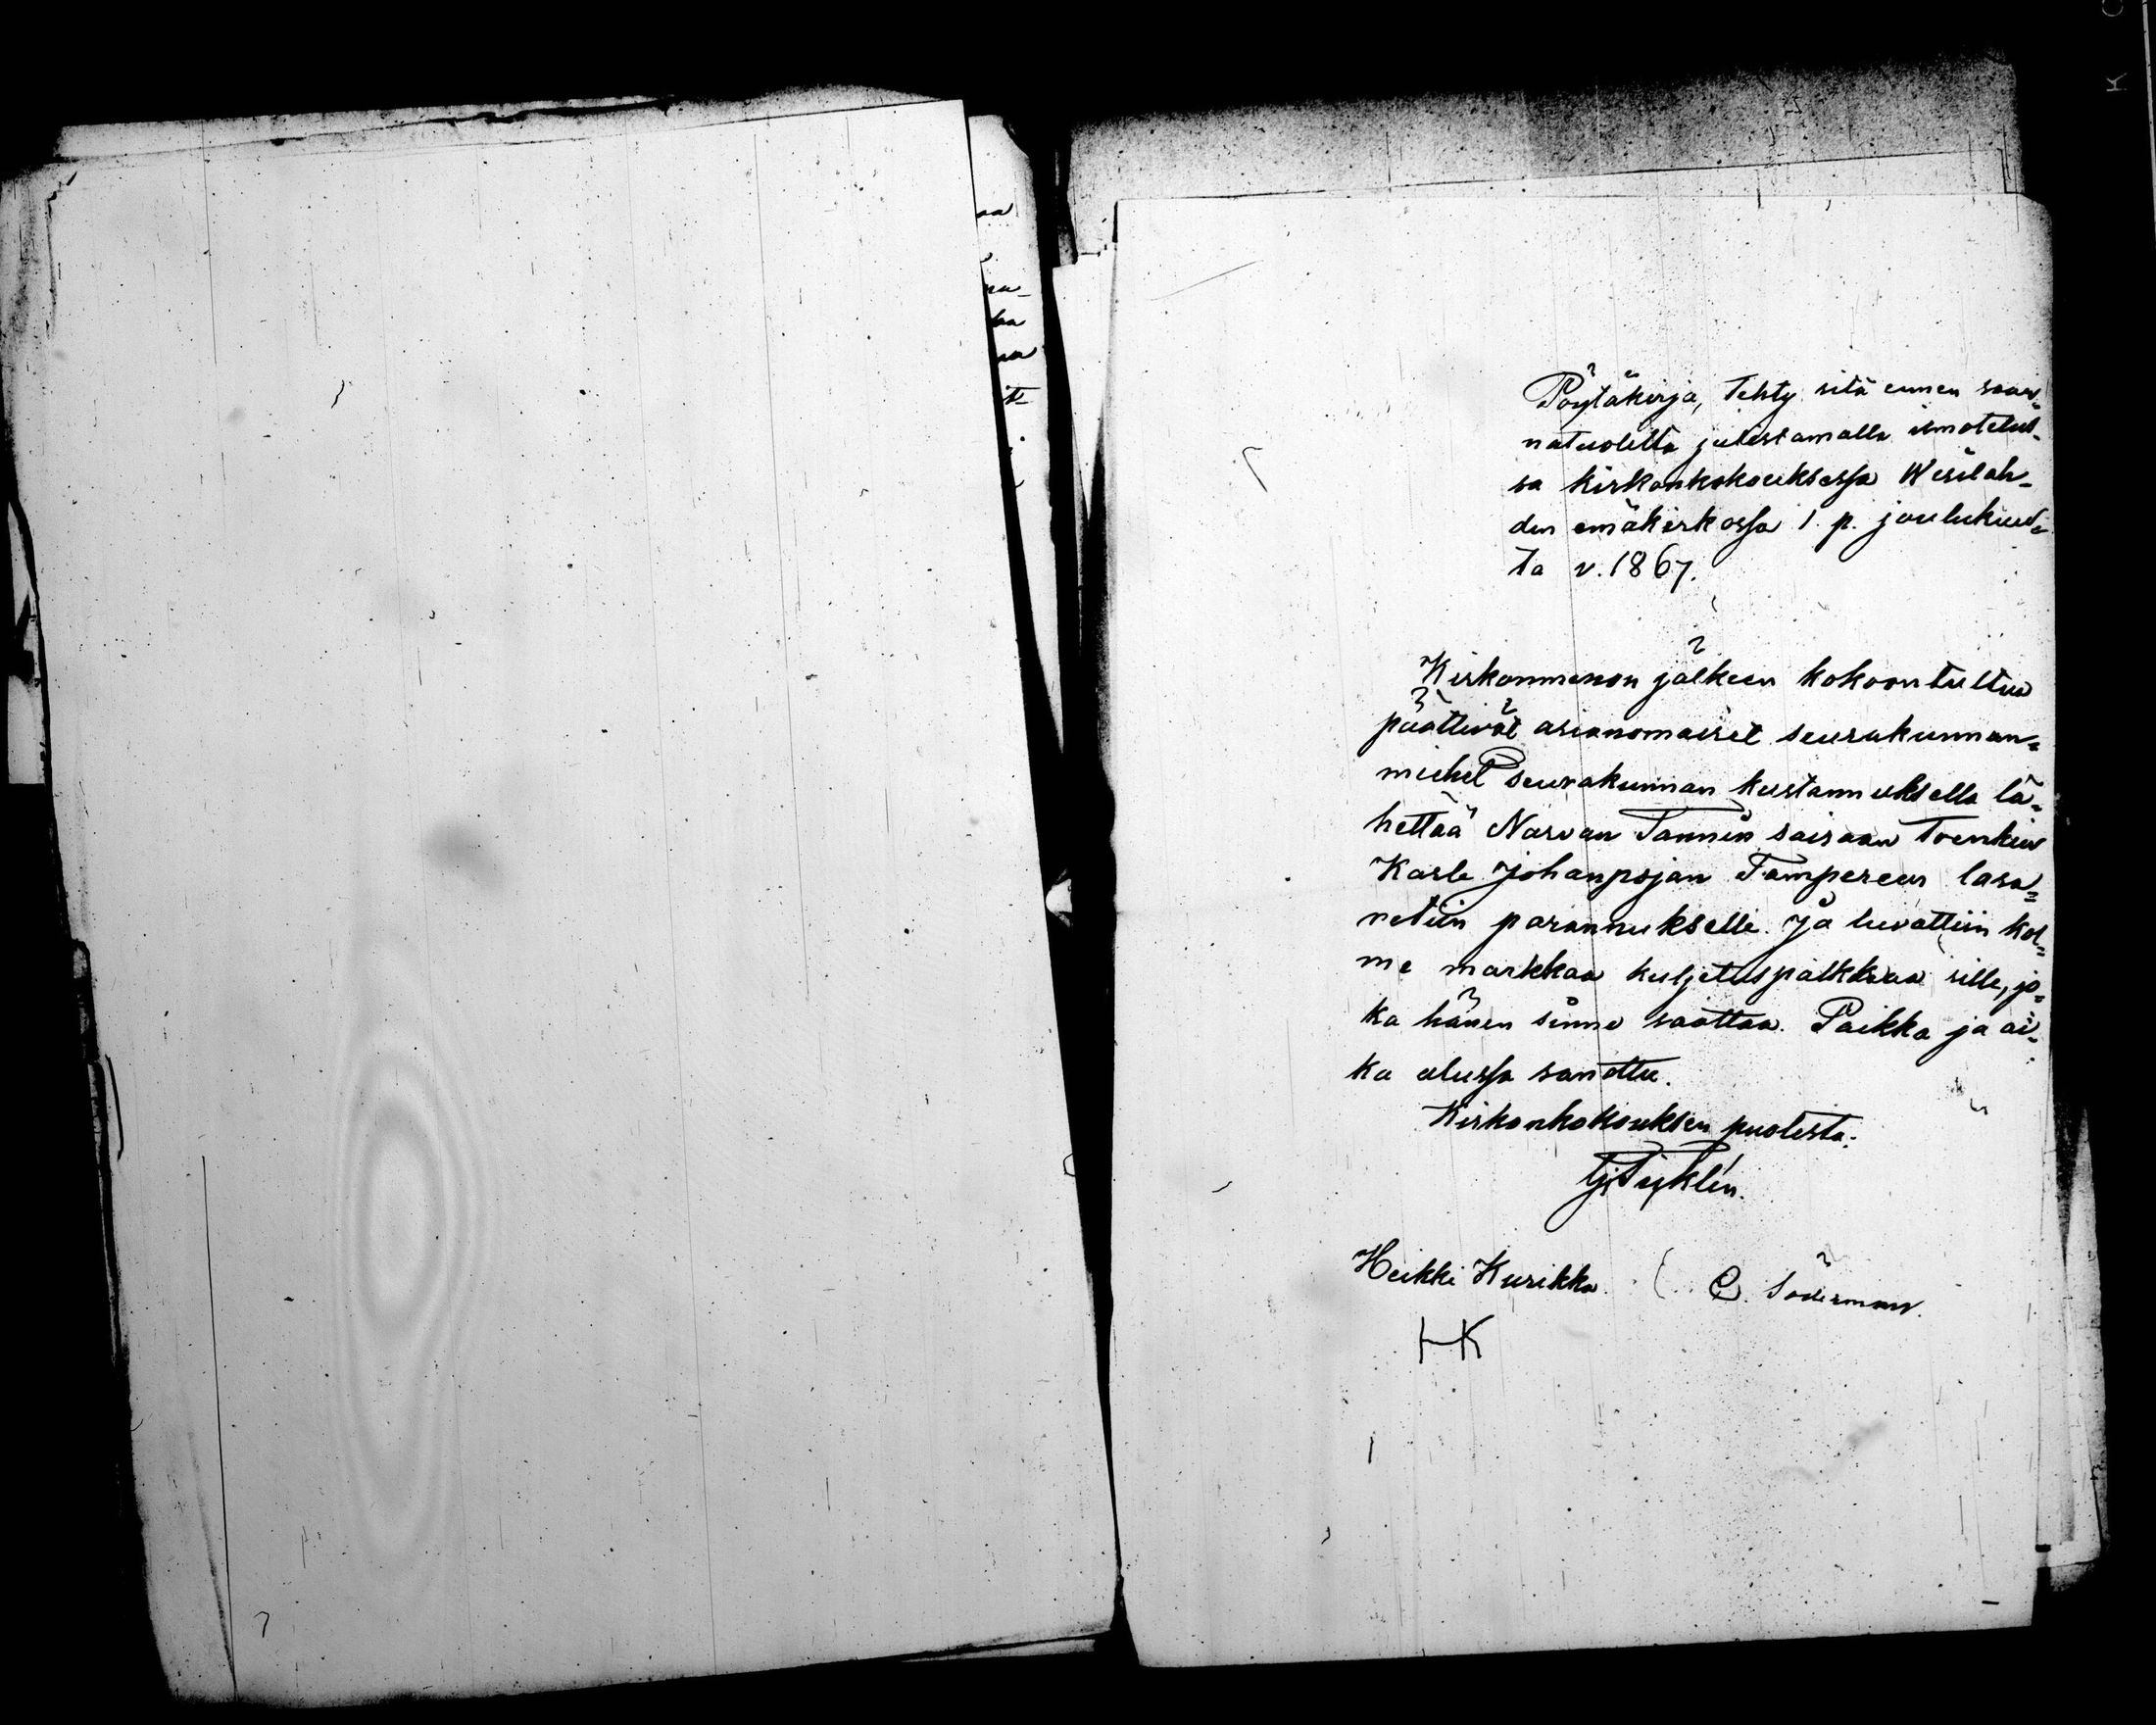 Pöytäkirja, tehty sitä ennen saar-
natuolilta julistamalla ilmotetus-
sa kirkonkokouksessa Wesilah-
den emäkirkossa 1. p. joulukuu-
ta v. 1867.
Kirkonmenon jälkeen kokoontultua
päättivät asianomaiset seurakunnan-
miehet seurakunnan kustannuksella lä-
hettää Narvan Tannin sairaan
Karle Johanpojan Tampereen lasa-
retiin parannukselle. Ja luvattiin kol-
me markkaa kuljetuspalkkaa sille, jo-
ka hänen sinne saattaa. Paikka ja ai-
ka alussa sanottu.
Kirkonkokouksen puolesta:
Heikki Kurikka. C. Söderman.
HK